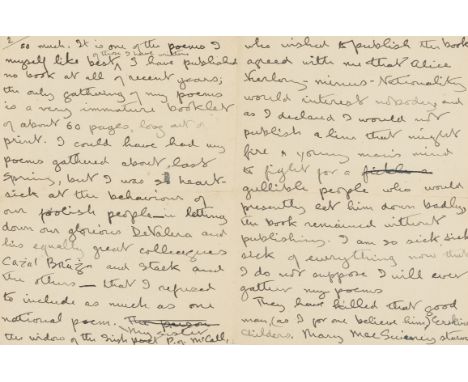 2
so much. It is one of the poems I
of those I have written
myself like best, I have published
no book at all of recent years;
the only gathering of my poems
is a very immature booklet
of about 60 pages, long out of
print. I could have had my
poems gathered about last
Spring, but I was so heart-
sick at the behaviour of
our foolish people in letting
down our glorious DeValera and
his equally great colleagues
Cazal Brúga and Stack and
the others — that I refused
to include as much as one
national poem. The person
My sister
the widow of the Irish poet P. J. McCall,
who wished to publish the book
agreed with me that Alice
Furlong - minus - Nationality
would interest nobody and
as I declared I would not
publish a line that might
fire a young man's mind
to fight for a fickle
gullible people who would
presently let him down badly
the book remained without
publishing. I am so sick sick
sick of everything now that
I do not suppose I will ever
gather my poems
They have killed that good
man, (as I for one believe him) Erskine
Childers. Mary MacSwiney